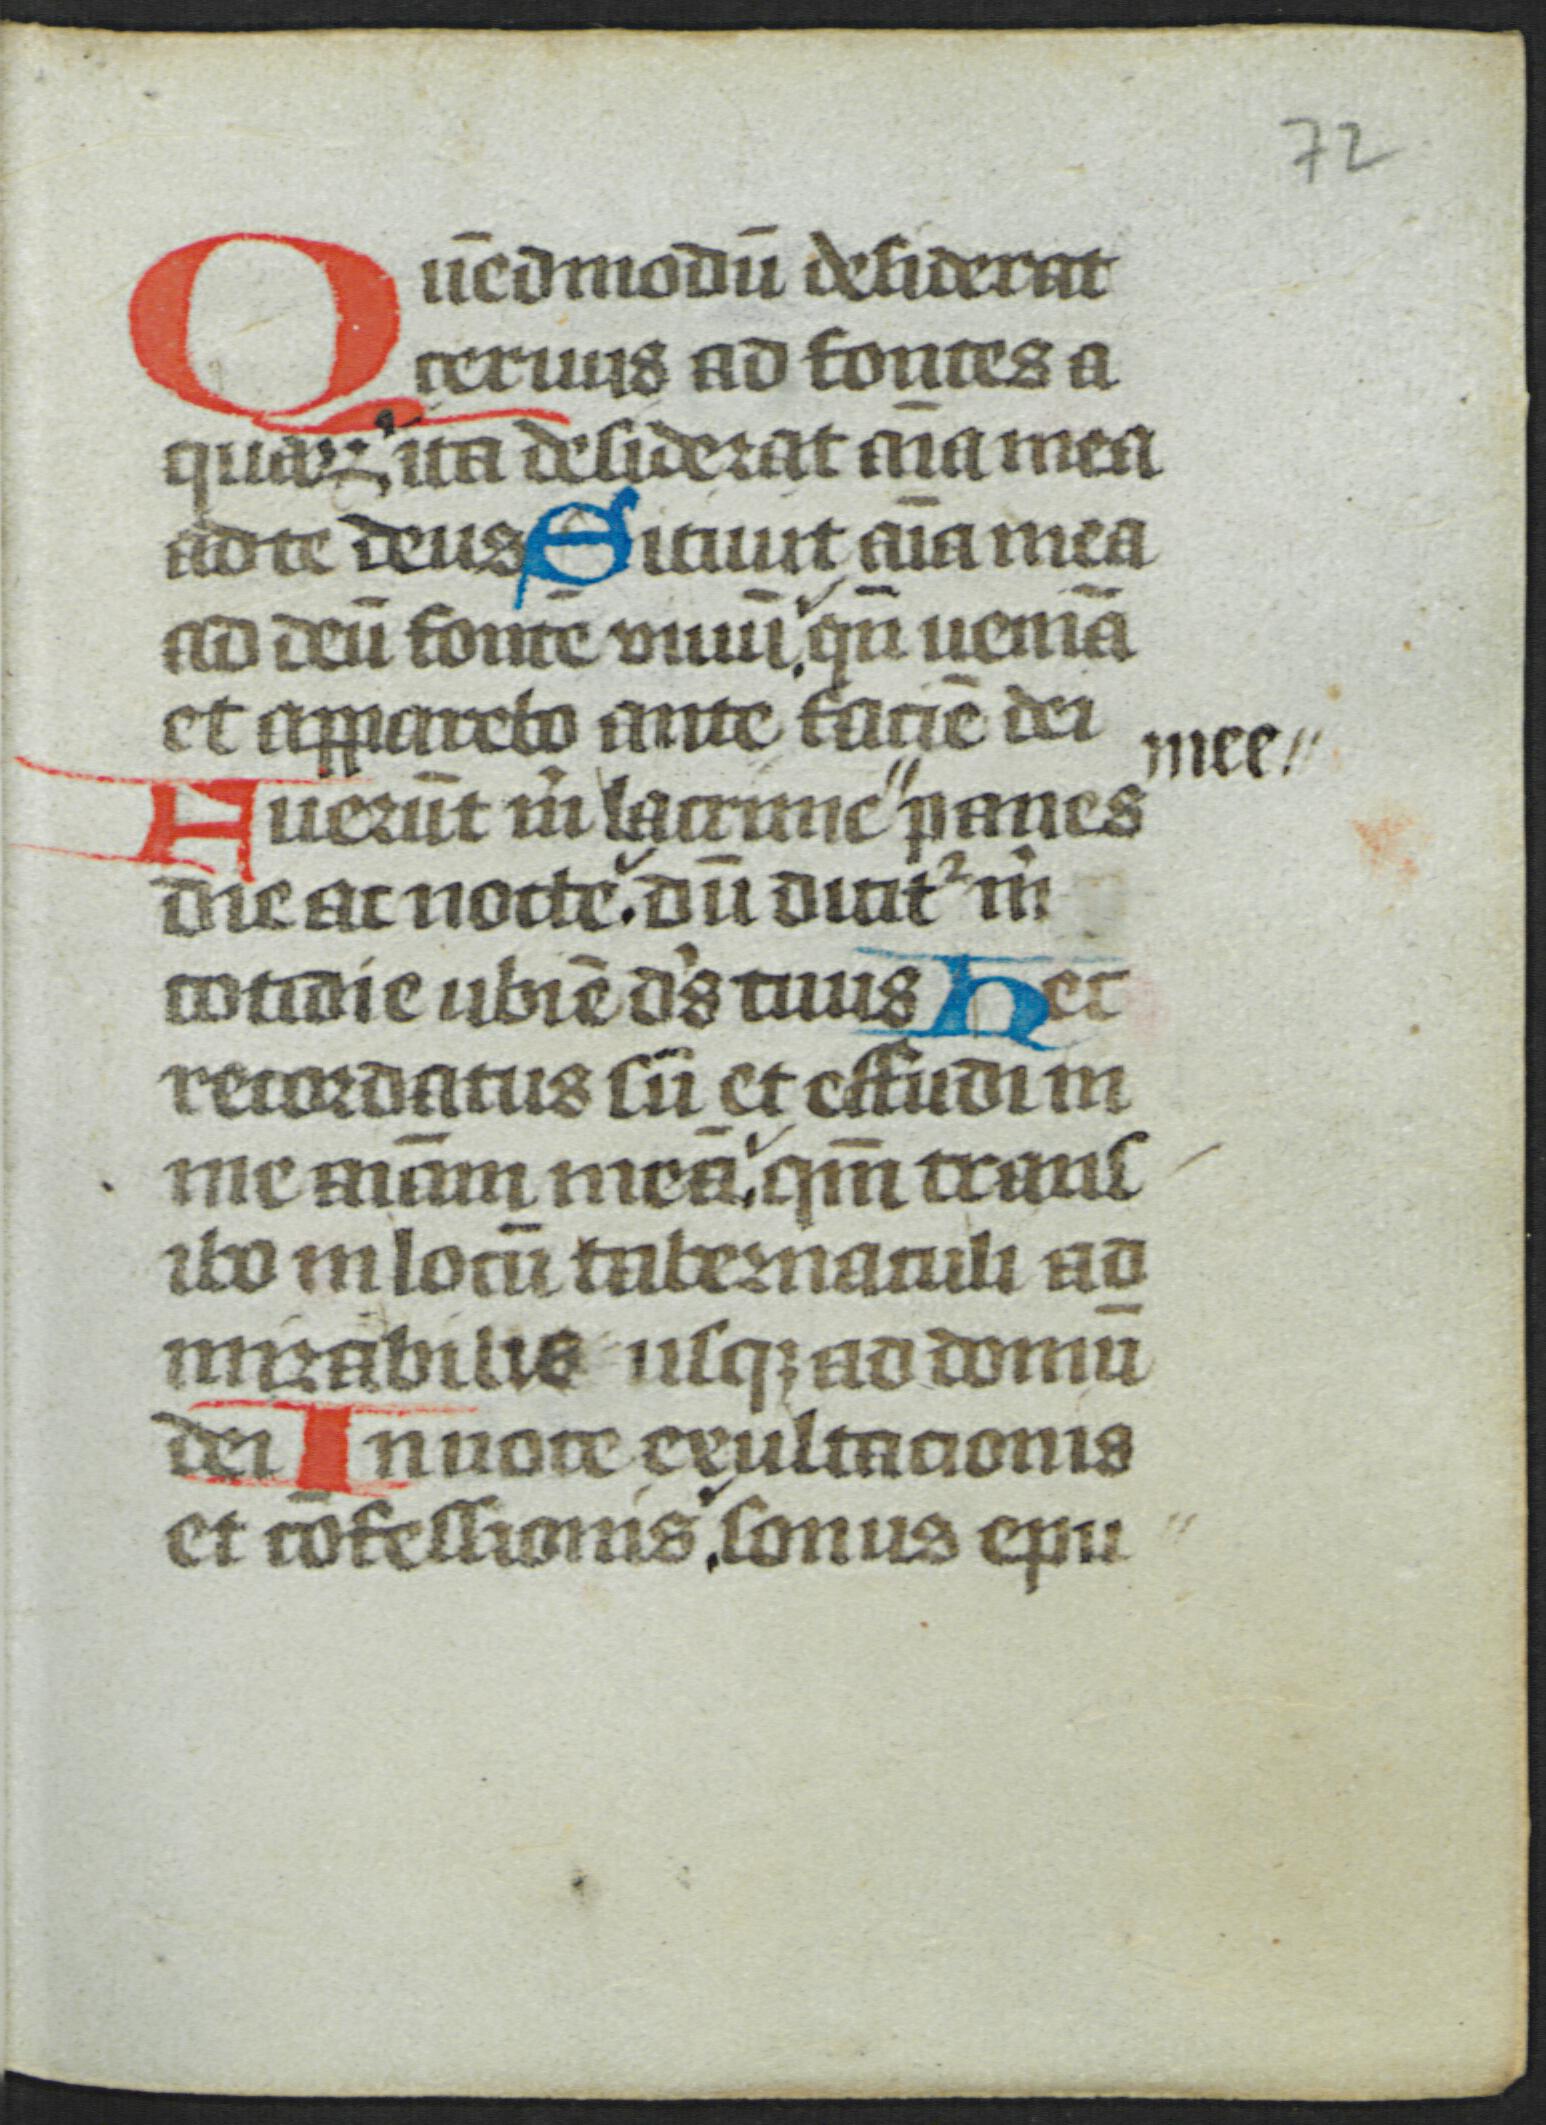 72
Quēdmodū desiderat
ceruus ad fontes a
quaꝝ ita desiderat aīa mea
ad te deus Sitiuit aīa mea
ad deū fontē viuū. qn̄ ueniā
et apparebo ante faciē dei
Auerūt m̄ lacrime〃 panes mee〃
die ac nocte. dū dicit᷑ m̄
cotidie ubi ē d̄s tuus hec
recordatus sū et effudi in
me aīam meā. qm̄ trans
ibo in locū tabernaculi ad
mirabilis usqꝫ ad domū
dei In uoce exultacionis
et cōfessionis. sonus epu〃